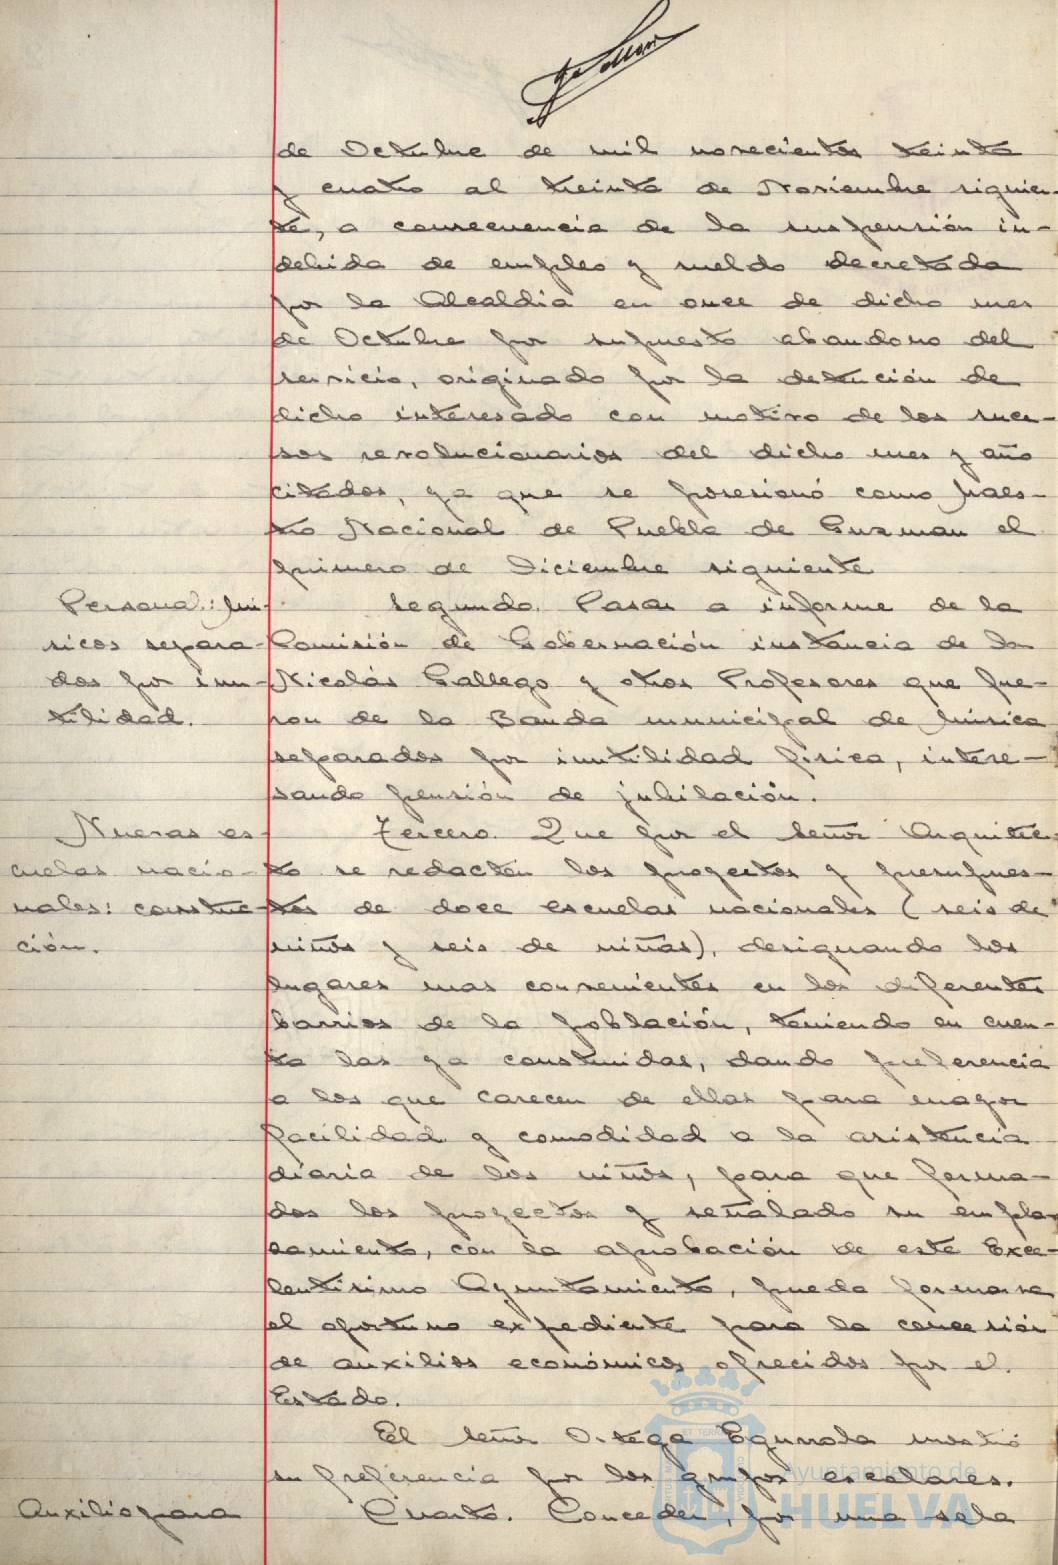 de Octubre de mil novecientos treinta
y cuatro al treinta de Noviembre siguien-
te, a consecuencia de la suspensión in-
debida de empleo y sueldo decretada
por la Alcaldia en once de dicho mes
de Octubre por supuesto abandono del
servicio, originado por la detención de
dicho interesado con motivo de los suce-
sos revolucionarios del dicho mes y año
citados, ya que se posesionó como Maes-
tro Nacional de Puebla de Guzman el
primero de Diciembre siguiente
Personal: Mú-
sicos separa-
dos por inu-
tilidad.
Segundo. Pasar a informe de la
Comisión de Gobernación instancia de don
Nicolás Gallego y otros Profesores que fue-
ron de la Banda municipal de Música
separados por inutilidad física, intere-
sando pensión de jubilación.
Nuevas es-
cuelas nacio-
nales: construc-
ción.
Tercero. Que por el señor Arquitec-
to se redacten los proyectos y presupues-
tos de doce escuelas nacionales (seis de
niños y seis de niñas), designando los
lugares mas convenientes en los diferentes
barrios de la población, teniendo en cuen-
ta las ya construidas, dando preferencia
a los que carecen de ellas para mayor
facilidad y comodidad a la asistencia
diaria de los niños, para que forma-
dos los proyectos y señalado su empla-
zamiento, con la aprobación de este Exce-
lentísimo Ayuntamiento, pueda formarse
el oportuno expediente para la concesión
de auxilios económicos ofrecidos por el
Estado.
El señor Ortega Egurrola mostró
su preferencia por los grupos escolares.
Auxilio para
Cuarto. Conceder, por una sola
Ayuntamiento de
HUELVA